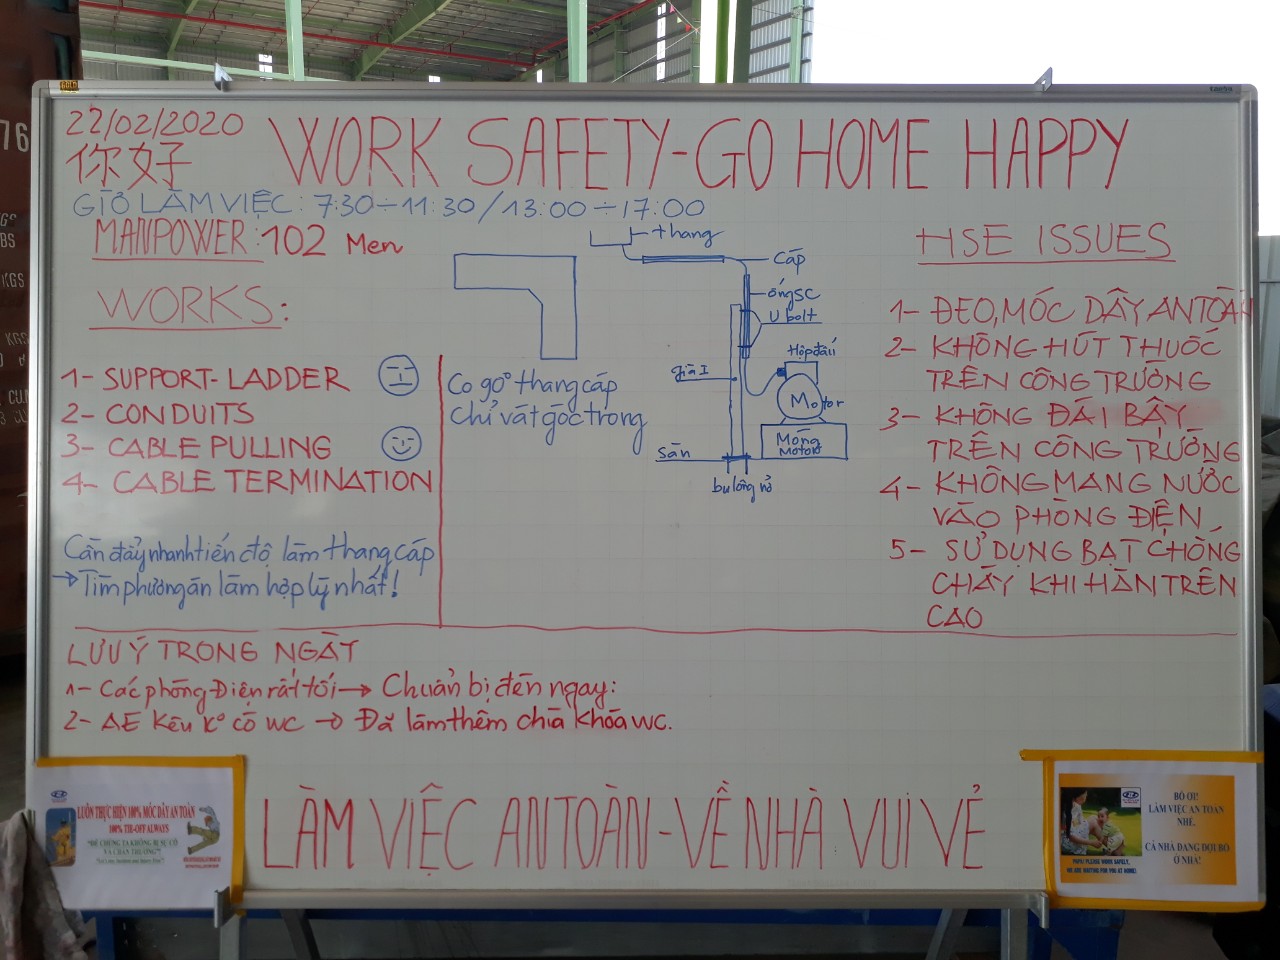 22/02/2020
你好
WORK SAFETY-GO HOME HAPPY
GIỜ LÀM VIỆC: 7:30÷11:30/13:00÷17:00
MANPOWER: 102 Men
WORKS:
1- SUPPORT-LADDER
2- CONDUITS
3- CABLE PULLING
4- CABLE TERMINATION
Cần đẩy nhanh tiến độ làm thang cáp
→ Tìm phương án làm hợp lý nhất!
Co 90° thang cáp
Chỉ vát góc trong
thang
Cáp
ống SC
U bolt
Hộp đấu
giá I
Motor
Móng
Motor
sàn
bu lông nở
HSE ISSUES
1- ĐEO, MÓC DÂY AN TOÀN
2- KHÔNG HÚT THUỐC
TRÊN CÔNG TRƯỜNG
3- KHÔNG ĐÁI BẬY
TRÊN CÔNG TRƯỜNG
4- KHÔNG MANG NƯỚC
VÀO PHÒNG ĐIỆN
5- SỬ DỤNG BẠT CHỐNG
CHÁY KHI HÀN TRÊN
CAO
LƯU Ý TRONG NGÀY
1- Các phòng Điện rất tối → Chuẩn bị đèn ngay:
2- AE kêu K° có WC → Đã làm thêm chìa khóa WC.
LÀM VIỆC AN TOÀN-VỀ NHÀ VUI VẺ
LUÔN THỰC HIỆN 100% MÓC DÂY AN TOÀN
100% TIE-OFF ALWAYS
"ĐỂ CHÚNG TA KHÔNG BỊ SỰ CỐ
VÀ CHẤN THƯƠNG"!
BỐ ƠI!
LÀM VIỆC AN TOÀN
NHÉ.
CẢ NHÀ ĐANG ĐỢI BỐ
Ở NHÀ!
PAPA! PLEASE WORK SAFELY,
WE ARE WAITING FOR YOU AT HOME!